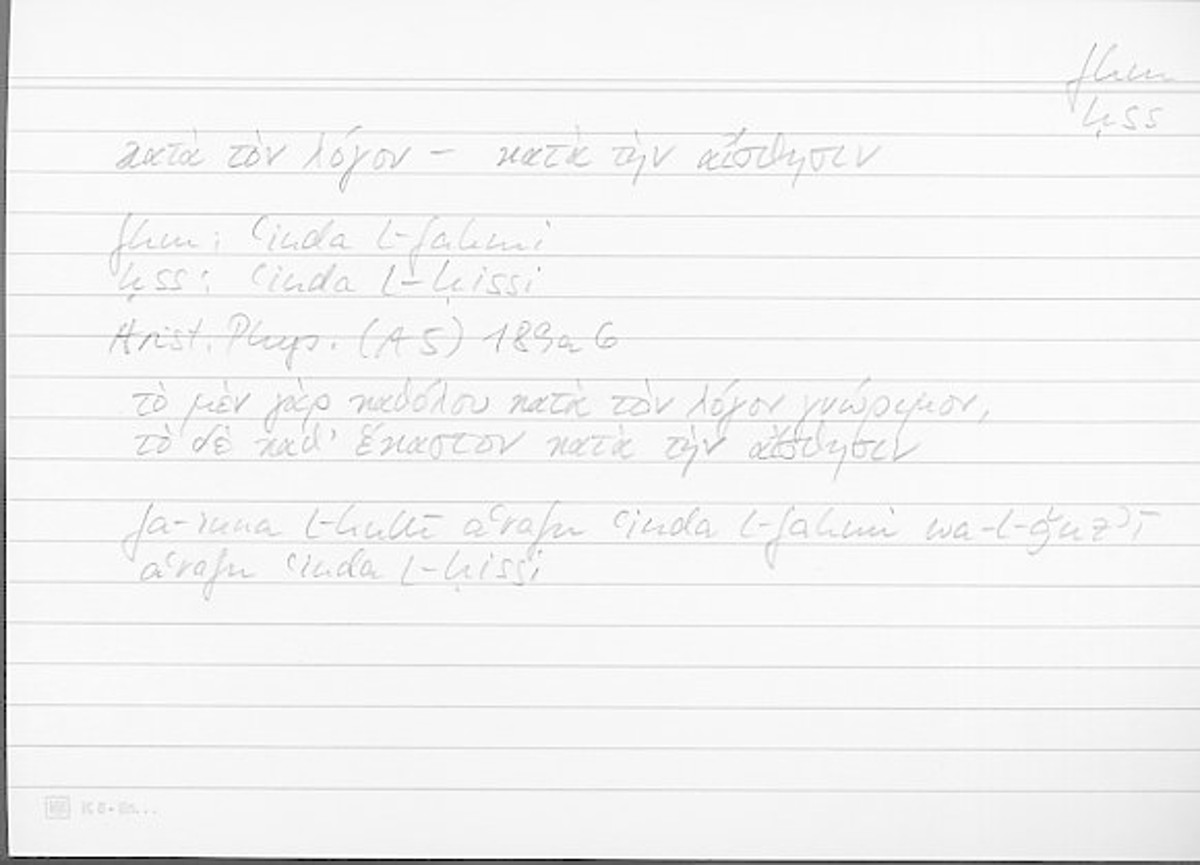 fhm
ḥss
κατὰ τὸν λόγον – κατὰ τὴν αἴσθησιν
fhm: ʿinda l-fahmi
ḥss: ʿinda l-ḥissi
Arist. Phys. (A 5) 189a 6
τὸ μὲν γὰρ καθόλου κατὰ τὸν λόγον γνώριμον,
τὸ δὲ καθ' ἕκαστον κατὰ τὴν αἴσθησιν
fa-inna l-kullī aʿrafu ʿinda l-fahmi wa-l-ǧuzʾī
aʿrafu ʿinda l-ḥissi